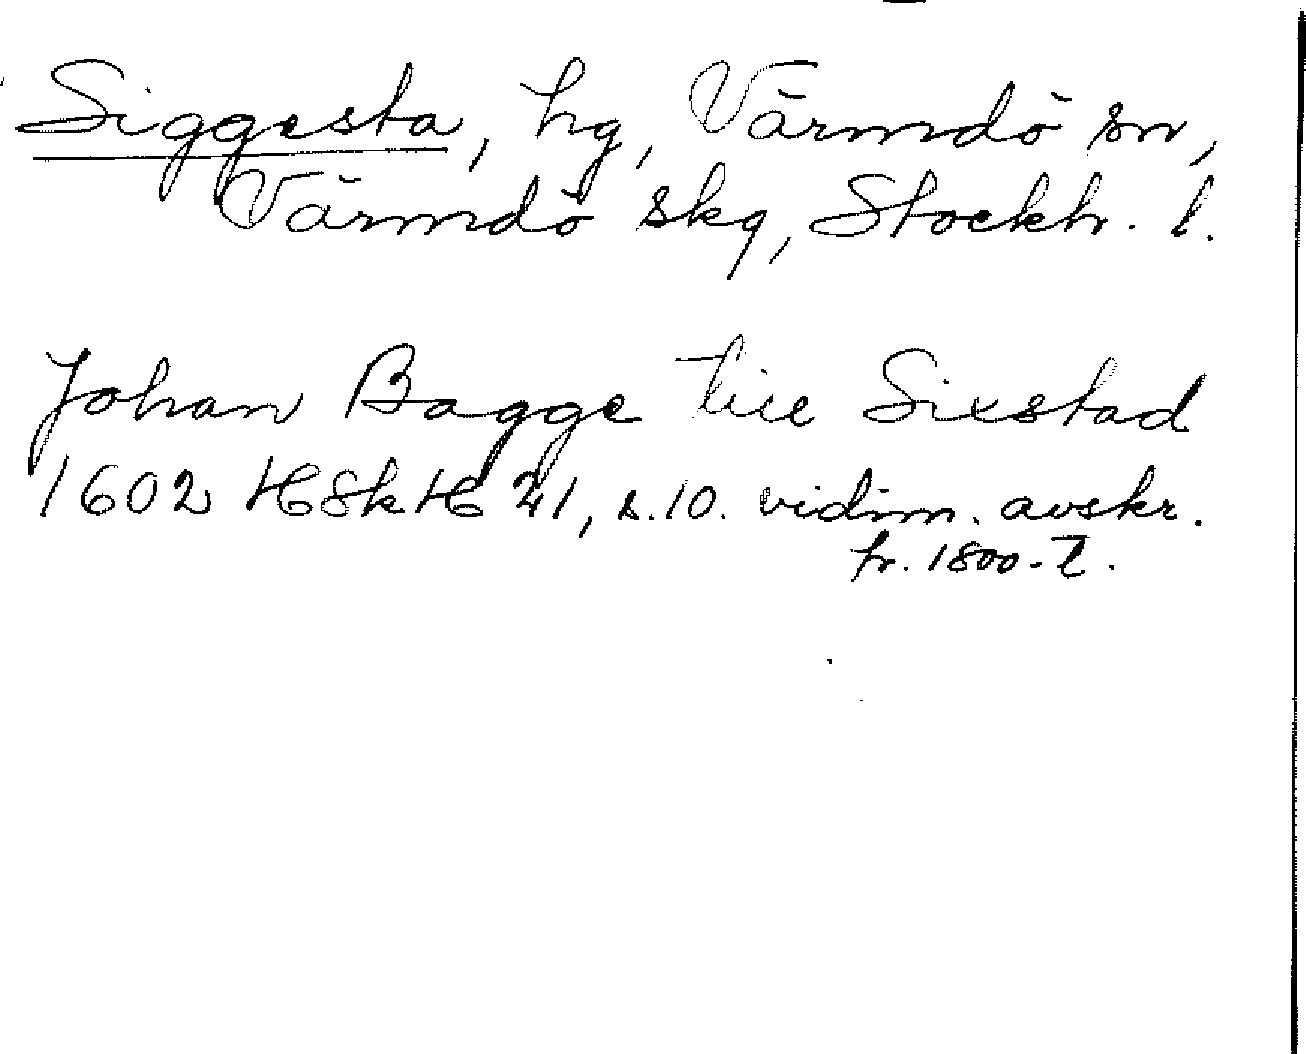 Siggesta, hg, Värmdö sn,
Värmdö skg, Stockh. l.
Johan Bagge till Sixstad
1602 HSkH 21, s. 10. vidim. avskr.
fr. 1800-t.